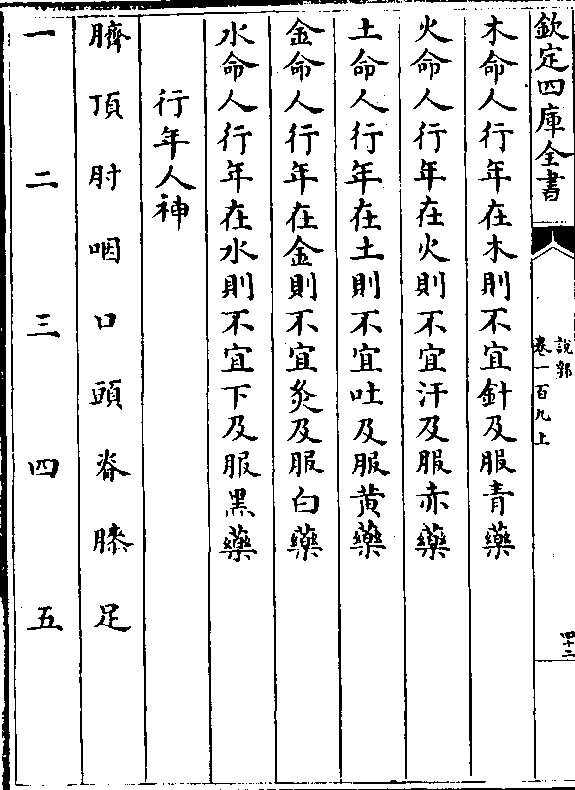 欽定四庫全書
說郛
卷一百九上
四十二
木命人行年在木則不宜針及服青藥
火命人行年在火則不宜汗及服赤藥
土命人行年在土則不宜吐及服黄藥
金命人行年在金則不宜灸及服白藥
水命人行年在水則不宜下及服黑藥
行年人神
臍頂肘咽口頭脊膝足
一二三四五